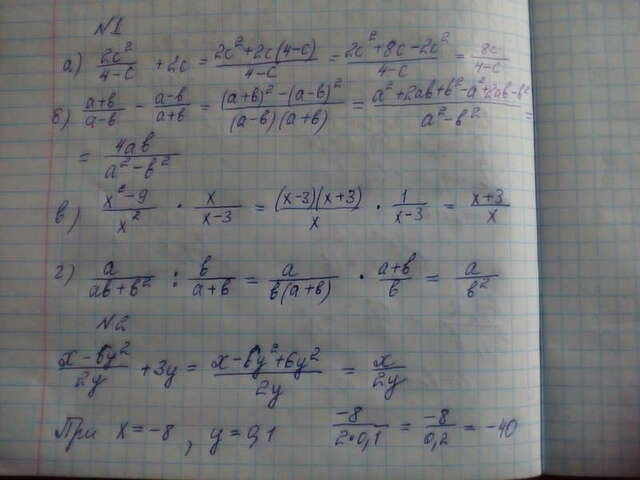 №1
а) 2c²/(4-c) + 2c = (2c²+2c(4-c))/(4-c) = (2c²+8c-2c²)/(4-c) = 8c/(4-c)
б) (a+b)/(a-b) - (a-b)/(a+b) = ((a+b)²-(a-b)²)/((a-b)(a+b)) = (a²+2ab+b²-a²+2ab-b²)/(a²-b²) =
= 4ab/(a²-b²)
в) (x²-9)/x² · x/(x-3) = (x-3)(x+3)/x · 1/(x-3) = (x+3)/x
г) a/(ab+b²) : b/(a+b) = a/(b(a+b)) · (a+b)/b = a/b²
№2
(x-6y²)/2y + 3y = (x-6y²+6y²)/2y = x/2y
При x=-8, y=0,1 -8/(2·0,1) = -8/0,2 = -40